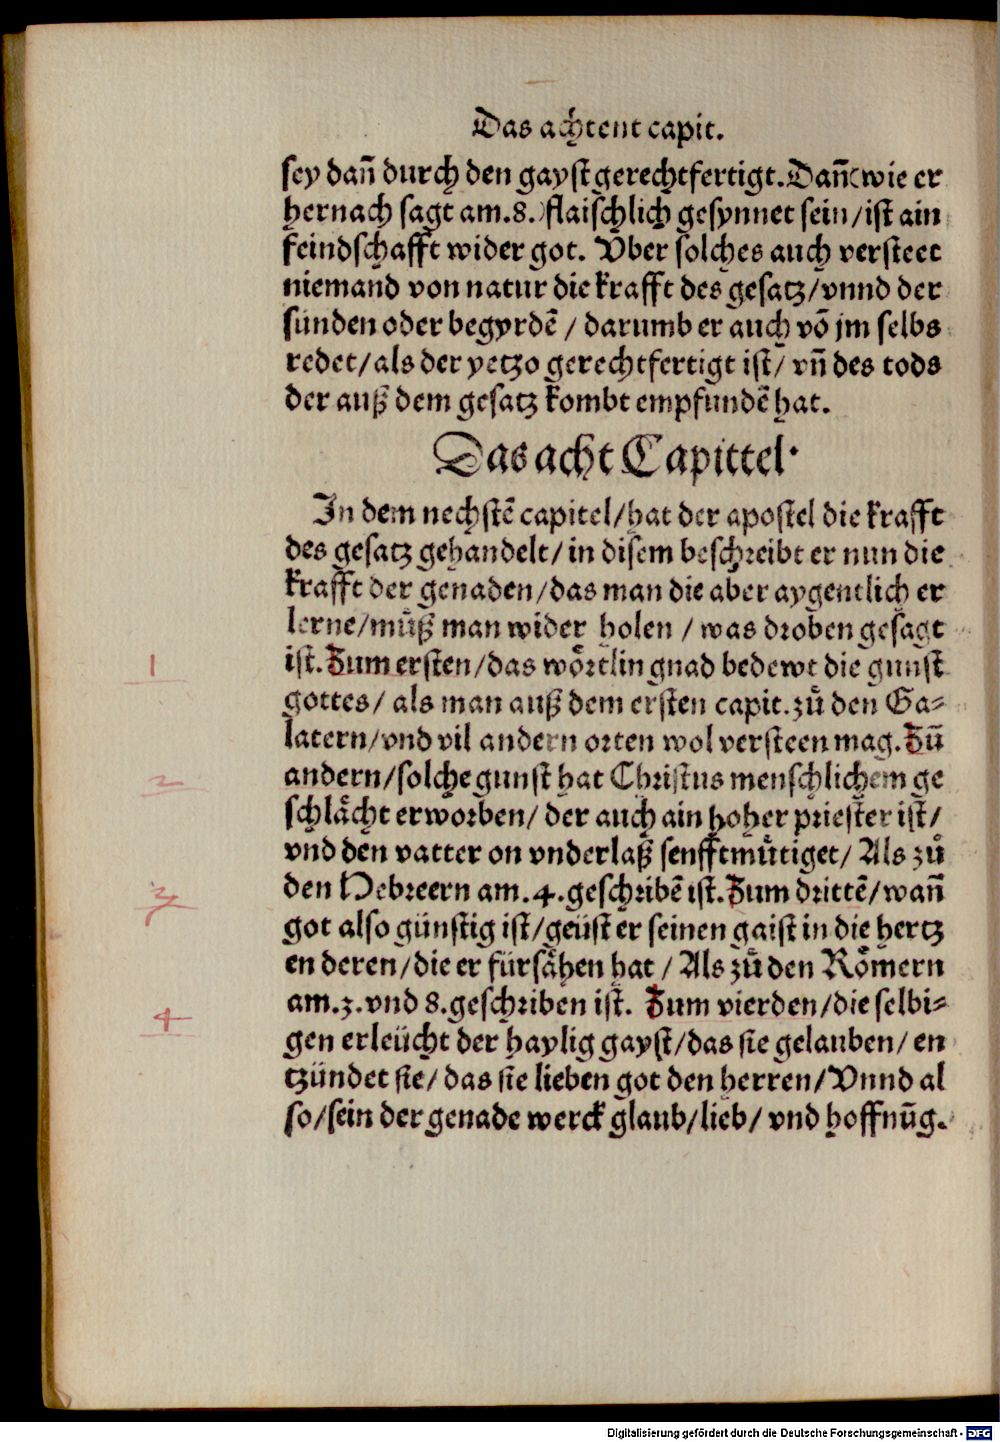 Das achtent capit.
sey dañ durch den gayst gerechtfertigt. Dañ wie er
hernach sagt am. 8. flaischlich gesynnet sein / ist ain
feindschafft wider got. Vber solches auch versteet
niemand von natur die krafft des gesatz / vnnd der
sünden oder begyrdẽ / darumb er auch võ jm selbs
redet / als der yetzo gerechtfertigt ist / vñ des tods
der auß dem gesatz kombt empfundẽ hat.
Das acht Capittel.
In dem nechstẽ capitel / hat der apostel die krafft
des gesatz gehandelt / in disem beschreibt er nun die
krafft der genaden / das man die aber aygentlich er
lerne / můß man wider holen / was droben gesagt
ist. Zum ersten / das wörtlin gnad bedewt die gunst
gottes / als man auß dem ersten capit. zů den Ga⸗
latern / vnd vil andern orten wol versteen mag. Zũ
andern / solche gunst hat Christus menschlichem ge
schlächt erworben / der auch ain hoher priester ist /
vnd den vatter on vnderlaß senfftmütiget / Als zů
den Hebreern am. 4. geschribẽ ist. Zum drittẽ / wañ
got also günstig ist / geüst er seinen gaist in die hertz
en deren / die er fürsähen hat / Als zů den Römern
am. 3. vnd 8. geschriben ist. Zum vierden / die selbi⸗
gen erleücht der haylig gayst / das sie gelauben / en
tzündet sie / das sie lieben got den herren / Vnnd al
so / sein der genade werck glaub / lieb / vnd hoffnũg.
1
2
3
4
Digitalisierung gefördert durch die Deutsche Forschungsgemeinschaft - DFG